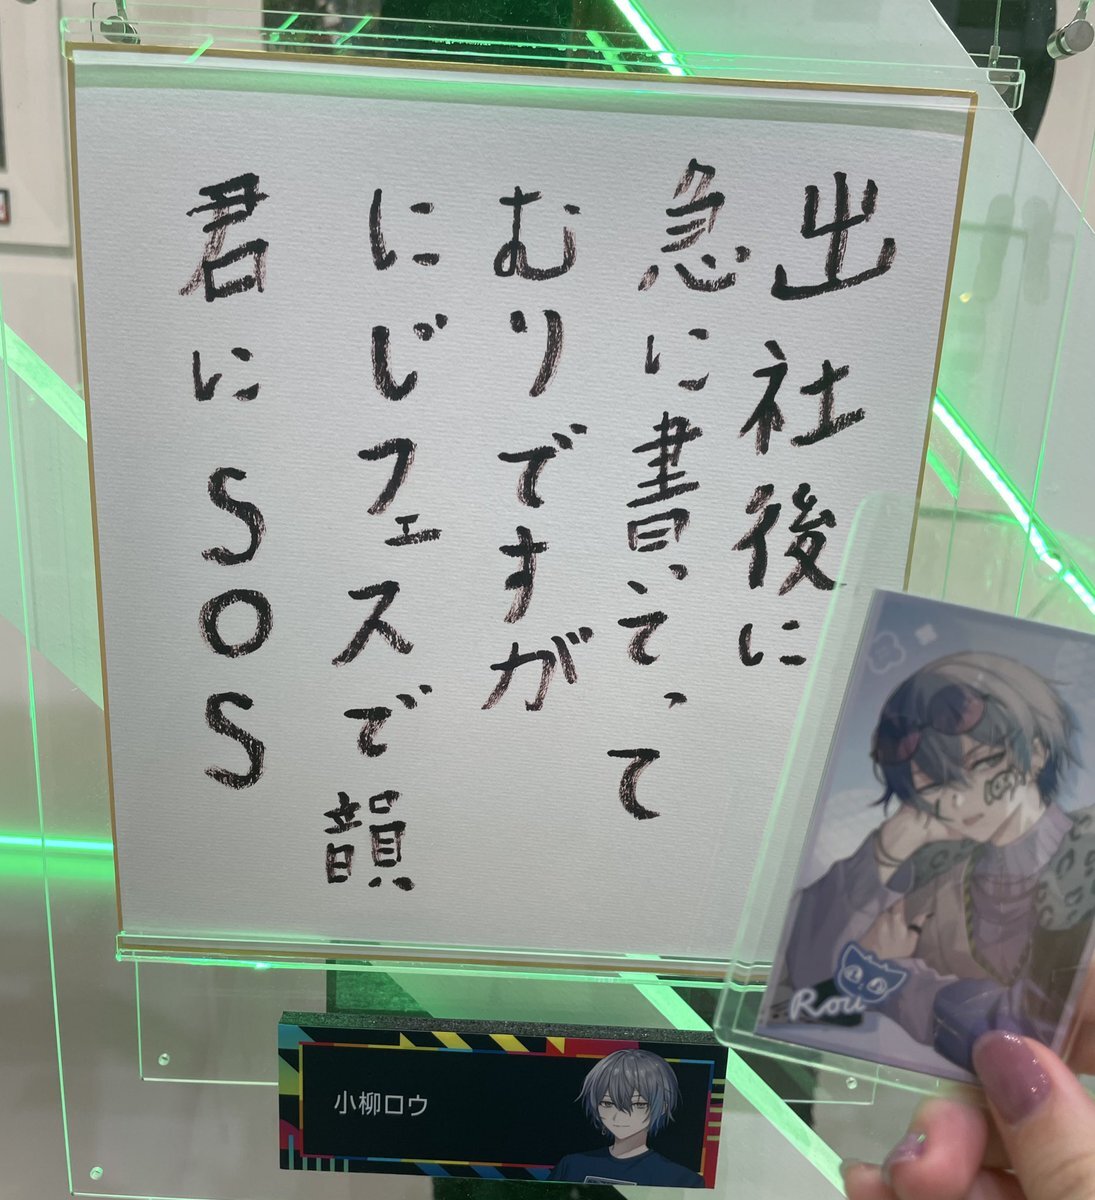 出社後に
急に書いてって
むりですが
にじフェスで韻
君にSOS
小柳ロウ
Rou